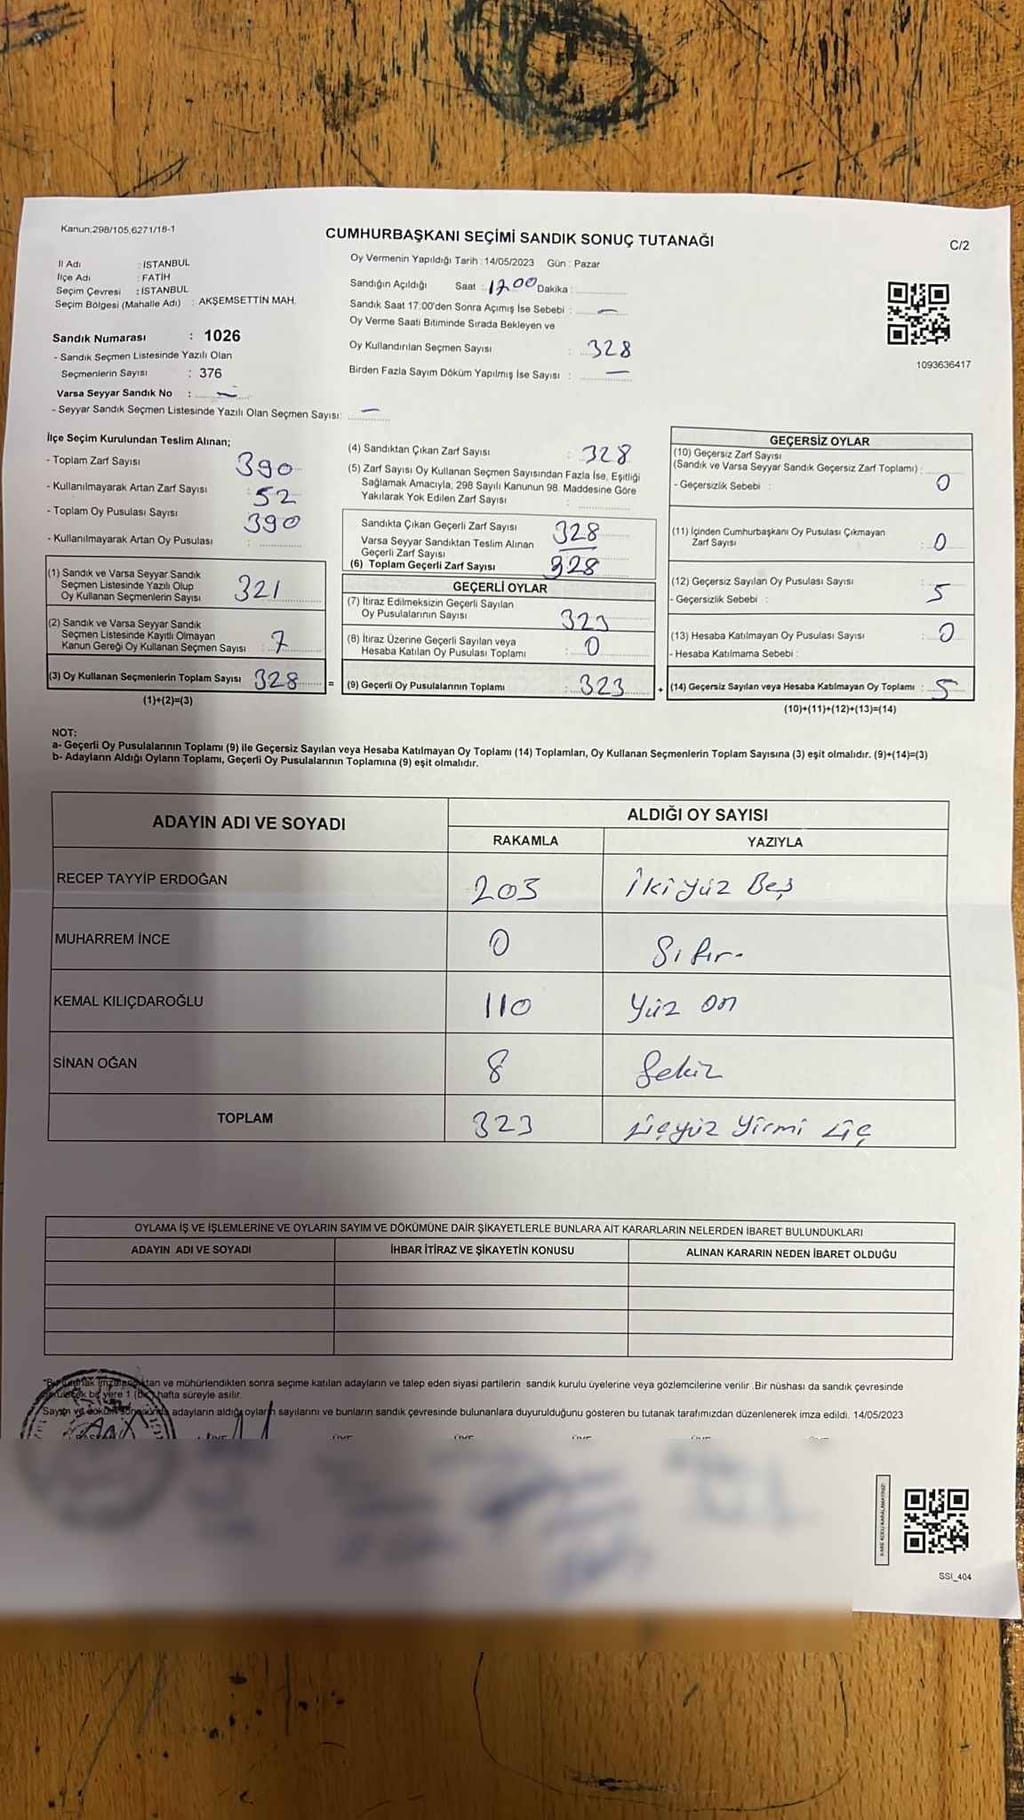 Kanun:298/105,6271/16-1
CUMHURBAŞKANI SEÇİMİ SANDIK SONUÇ TUTANAĞI
C/2
İl Adı : İSTANBUL
İlçe Adı : FATİH
Seçim Çevresi : İSTANBUL
Seçim Bölgesi (Mahalle Adı) : AKŞEMSETTİN MAH.
Oy Vermenin Yapıldığı Tarih : 14/05/2023 Gün : Pazar
Sandığın Açıldığı Saat : 1700 Dakika :
Sandık Saat 17:00'den Sonra Açımış İse Sebebi : —
Oy Verme Saati Bitiminde Sırada Bekleyen ve
Oy Kullandırılan Seçmen Sayısı : 328
Birden Fazla Sayım Döküm Yapılmış İse Sayısı : —
1093636417
Sandık Numarası : 1026
- Sandık Seçmen Listesinde Yazılı Olan
Seçmenlerin Sayısı : 376
Varsa Seyyar Sandık No : —
- Seyyar Sandık Seçmen Listesinde Yazılı Olan Seçmen Sayısı: —
İlçe Seçim Kurulundan Teslim Alınan;
- Toplam Zarf Sayısı 390
- Kullanılmayarak Artan Zarf Sayısı : 52
- Toplam Oy Pusulası Sayısı 390
- Kullanılmayarak Artan Oy Pusulası :
(1) Sandık ve Varsa Seyyar Sandık
Seçmen Listesinde Yazılı Olup
Oy Kullanan Seçmenlerin Sayısı 321
(2) Sandık ve Varsa Seyyar Sandık
Seçmen Listesinde Kayıtlı Olmayan
Kanun Gereği Oy Kullanan Seçmen Sayısı : 7
(3) Oy Kullanan Seçmenlerin Toplam Sayısı 328 =
(1)+(2)=(3)
(4) Sandıktan Çıkan Zarf Sayısı : 328
(5) Zarf Sayısı Oy Kullanan Seçmen Sayısından Fazla İse, Eşitliği
Sağlamak Amacıyla, 298 Sayılı Kanunun 98. Maddesine Göre
Yakılarak Yok Edilen Zarf Sayısı :
Sandıkta Çıkan Geçerli Zarf Sayısı 328
Varsa Seyyar Sandıktan Teslim Alınan
Geçerli Zarf Sayısı
(6) Toplam Geçerli Zarf Sayısı 328
GEÇERLİ OYLAR
(7) İtiraz Edilmeksizin Geçerli Sayılan
Oy Pusulalarının Sayısı 323
(8) İtiraz Üzerine Geçerli Sayılan veya
Hesaba Katılan Oy Pusulası Toplamı : 0
(9) Geçerli Oy Pusulalarının Toplamı : 323 +
GEÇERSİZ OYLAR
(10) Geçersiz Zarf Sayısı
(Sandık ve Varsa Seyyar Sandık Geçersiz Zarf Toplamı) :
- Geçersizlik Sebebi : 0
(11) İçinden Cumhurbaşkanı Oy Pusulası Çıkmayan
Zarf Sayısı : 0
(12) Geçersiz Sayılan Oy Pusulası Sayısı : 5
- Geçersizlik Sebebi :
(13) Hesaba Katılmayan Oy Pusulası Sayısı : 0
- Hesaba Katılmama Sebebi :
(14) Geçersiz Sayılan veya Hesaba Katılmayan Oy Toplamı : 5
(10)+(11)+(12)+(13)=(14)
NOT:
a- Geçerli Oy Pusulalarının Toplamı (9) ile Geçersiz Sayılan veya Hesaba Katılmayan Oy Toplamı (14) Toplamları, Oy Kullanan Seçmenlerin Toplam Sayısına (3) eşit olmalıdır. (9)+(14)=(3)
b- Adayların Aldığı Oyların Toplamı, Geçerli Oy Pusulalarının Toplamına (9) eşit olmalıdır.
ADAYIN ADI VE SOYADI
ALDIĞI OY SAYISI
RAKAMLA YAZIYLA
RECEP TAYYİP ERDOĞAN 205 İkiyüz Beş
MUHARREM İNCE 0 Sıfır-
KEMAL KILIÇDAROĞLU 110 Yüz on
SİNAN OĞAN 8 Sekiz
TOPLAM 323 üçyüz Yirmi üç
OYLAMA İŞ VE İŞLEMLERİNE VE OYLARIN SAYIM VE DÖKÜMÜNE DAİR ŞİKAYETLERLE BUNLARA AİT KARARLARIN NELERDEN İBARET BULUNDUKLARI
ADAYIN ADI VE SOYADI İHBAR İTİRAZ VE ŞİKAYETİN KONUSU ALINAN KARARIN NEDEN İBARET OLDUĞU
ve mühürlendikten sonra seçime katılan adayların ve talep eden siyasi partilerin sandık kurulu üyelerine veya gözlemcilerine verilir. Bir nüshası da sandık çevresinde
bir yere 1 (bir) hafta süreyle asılır.
Sayım ve döküm adayların aldığı oyların sayılarını ve bunların sandık çevresinde bulunanlara duyurulduğunu gösteren bu tutanak tarafımızdan düzenlenerek imza edildi. 14/05/2023
SSI_404